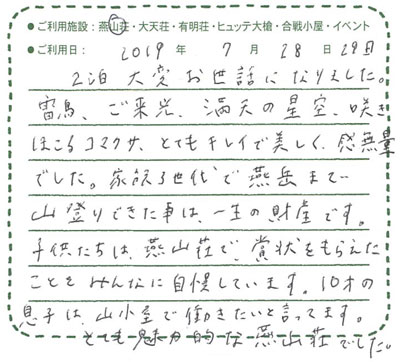 ●ご利用施設：燕山荘・大天荘・有明荘・ヒュッテ大槍・合戦小屋・イベント
●ご利用日： 2019 年 7 月 28 日 29日
2泊 大変お世話になりました。
雷鳥、ご来光、満天の星空、咲き
ほこるコマクサ、とてもキレイで美しく、感無量
でした。家族3世代で燕岳まで
山登りできた事は、一生の財産です。
子供たちは、燕山荘で、賞状をもらえた
ことをみんなに自慢しています。10才の
息子は、山小屋で働きたいと言ってます。
とても魅力的な燕山荘でした。